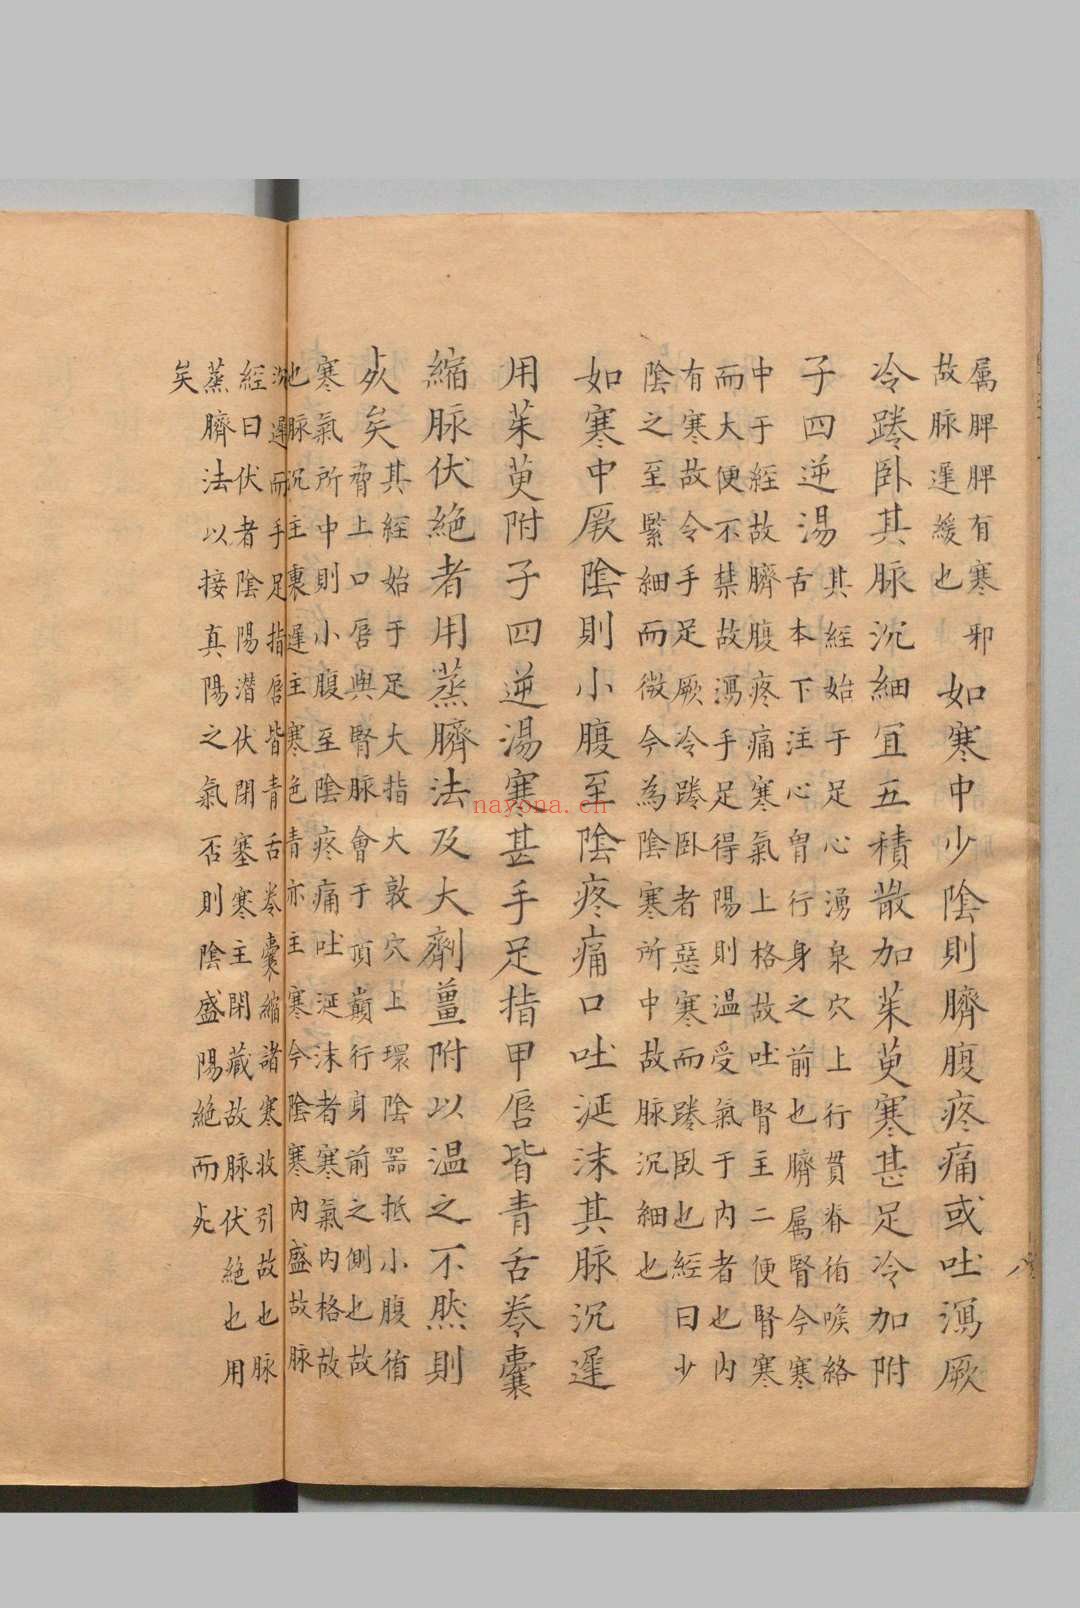 屬脾脾有寒邪
故脉遲緩也
如寒中少陰則臍腹疼痛或吐瀉厥
冷踡卧其脉沉細宜五積散加茱萸寒甚足冷加附
子四逆湯
其經始于足心湧泉穴上行貫脊循喉絡
舌本下注心胃行身之前也臍屬腎今寒
中于經故臍腹疼痛寒氣上格故吐腎主二便腎寒
而大便不禁故瀉手足得陽則温受氣于内者也内
有寒故令手足厥冷踡卧者惡寒而踡卧也經曰少
陰之至緊細而微今為陰寒所中故脉沉細也
如寒中厥陰則小腹至陰疼痛口吐涎沫其脉沉遲
用茱萸附子四逆湯寒甚手足指甲唇皆青舌卷囊
縮脉伏絕者用蒸臍法及大劑薑附以温之不然則
死矣
其經始于足大指大敦穴上環陰器抵小腹循
脅上口唇與腎脉會于頂巔行身前之側也故
寒氣所中則小腹至陰疼痛吐涎沫者寒氣内格故
也脉沉主裏遲主寒色青亦主寒今陰寒内盛故脉
沉遲而手足指唇皆青舌卷囊縮諸寒收引故也脉
經曰伏者陰陽潜伏閉塞寒主閉藏故脉伏絕也用
蒸臍法以接真陽之氣否則陰盛陽絕而死
矣
nayona.cn